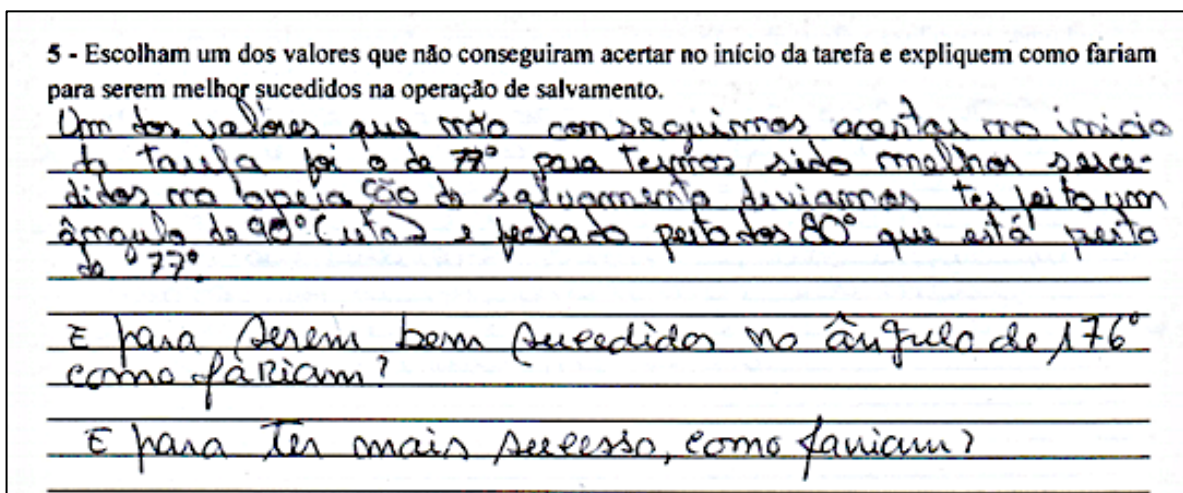 5 - Escolham um dos valores que não conseguiram acertar no início da tarefa e expliquem como fariam
para serem melhor sucedidos na operação de salvamento.
Um dos valores que não conseguimos acertar no inicio
da tarefa foi o de 77° para termos sido melhor suce-
didos na operação de salvamento deviamos ter feito um
ângulo de 90° (reto) e fechado perto dos 80° que está perto
do 77°
E para serem bem sucedidos no ângulo de 176°
como fariam?
E para ter mais sucesso, como fariam?